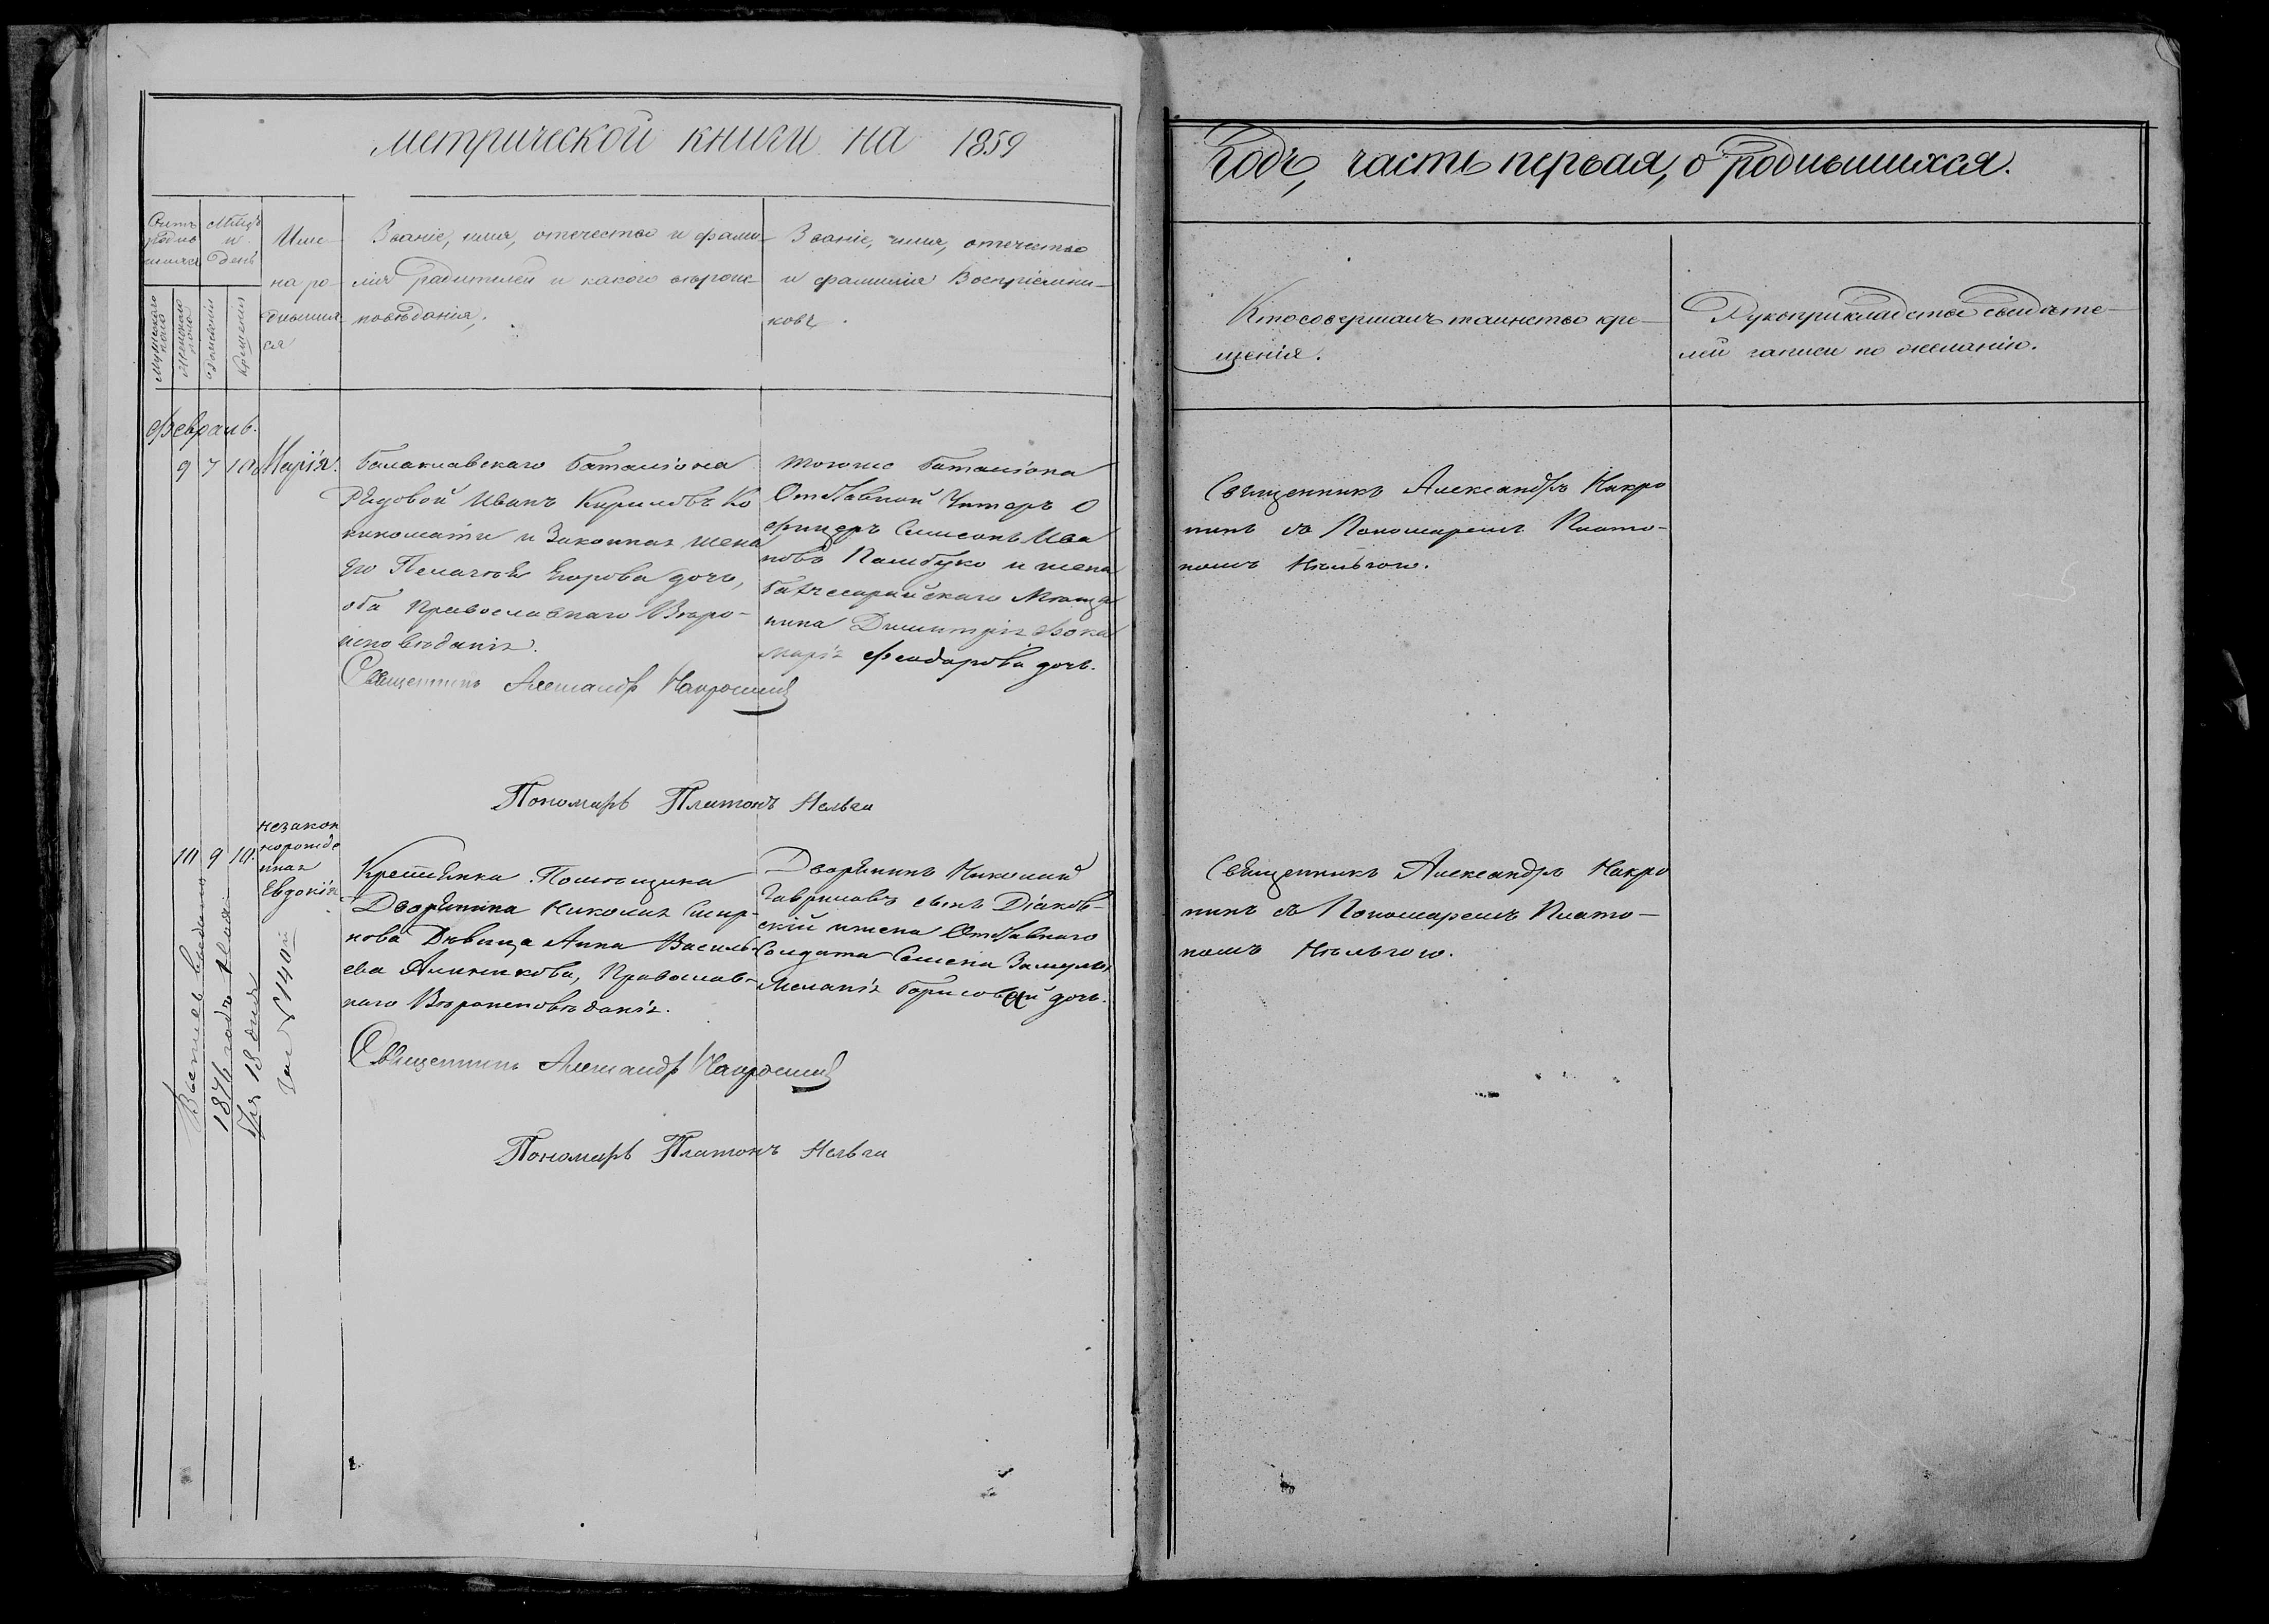 метрической книги на 1859
Годъ, часть первая, о родившихся.
Счетъ родив шихся
Мѣсцъ и день
Име- на ро- дившия ся
Званіе, имя, отечество и фами-
лия родителей и какого вѣроис-
повѣданія,
Званіе, имя, отечество
и фамилія Воспріемни-
ковъ.
Кто совершалъ таинство кре-
щенія.
Рукоприкладство свидѣте-
лей записи по желанію.
Мужескаго пола
Женскаго пола
рожденія
Крещенія
Февраль.
9 7 10 Марія.
Балаклавскаго баталіона
Рядовой Иванъ Кириловъ Ко
кинолати и Законная жена
его Пелагія Егорова дочь,
оба Православнаго Вѣро-
исповѣданія.
тогоже баталіона
Отставной Унтеръ О
фицеръ Симеонъ Ива
новъ Памбуко и жена
бахчисарайскаго Мѣща
нина Димитрія Фока
Марія Феодорова дочь.
Священникъ Александръ Накропинъ
Пономарь Платонъ Нельга
Священникъ Александръ Накро
пинъ съ Пономаремъ Плато-
номъ Нѣльгою.
10 9 10.
незакон
норожде
нная
Евдокія
Крестьянка Помѣщика
Дворянина Николая Смир-
нова Дѣвица Анна Василь-
ева Алиникова, Православ-
наго Вѣроисповѣданія.
Дворянинъ Николай
Гавриловъ сынъ Діаков-
скій и жена Отставнаго
Солдата Семена
Меланія Борисовой дочь.
Священникъ Александръ Накропинъ
Пономарь Платонъ Нельга
Священникъ Александръ Накро
пинъ съ Пономаремъ Плато-
номъ Нѣльгою.
выдано
1876 года
18 дня
за № 140й